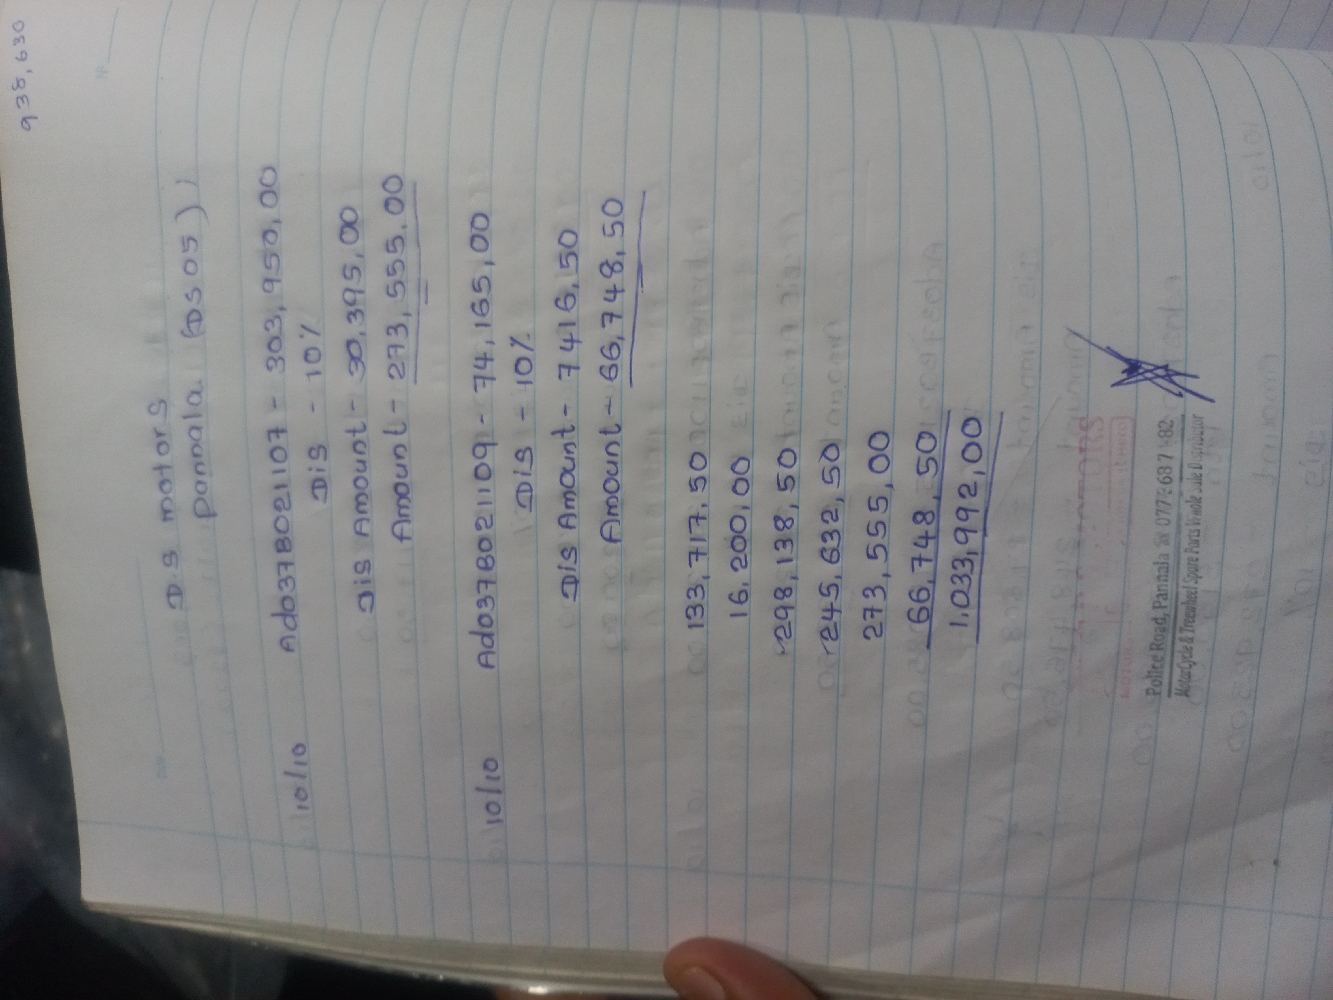 938,630
D.S motors
pannala (DS05)
10/10 Ad037B021107 - 303,950,00
Dis - 10%
Dis Amount - 30,395,00
Amount - 273,555,00
10/10 Ad037B021109 - 74,165,00
Dis - 10%
Dis Amount - 7416,50
Amount - 66,748,50
133,717,50
16,200,00
298,138,50
245,632,50
273,555,00
66,748,50
1,033,992,00
MOTORS
Police Road, Pannala
Motor Cycle & Threewheel Spare Parts Wholesale Distributor